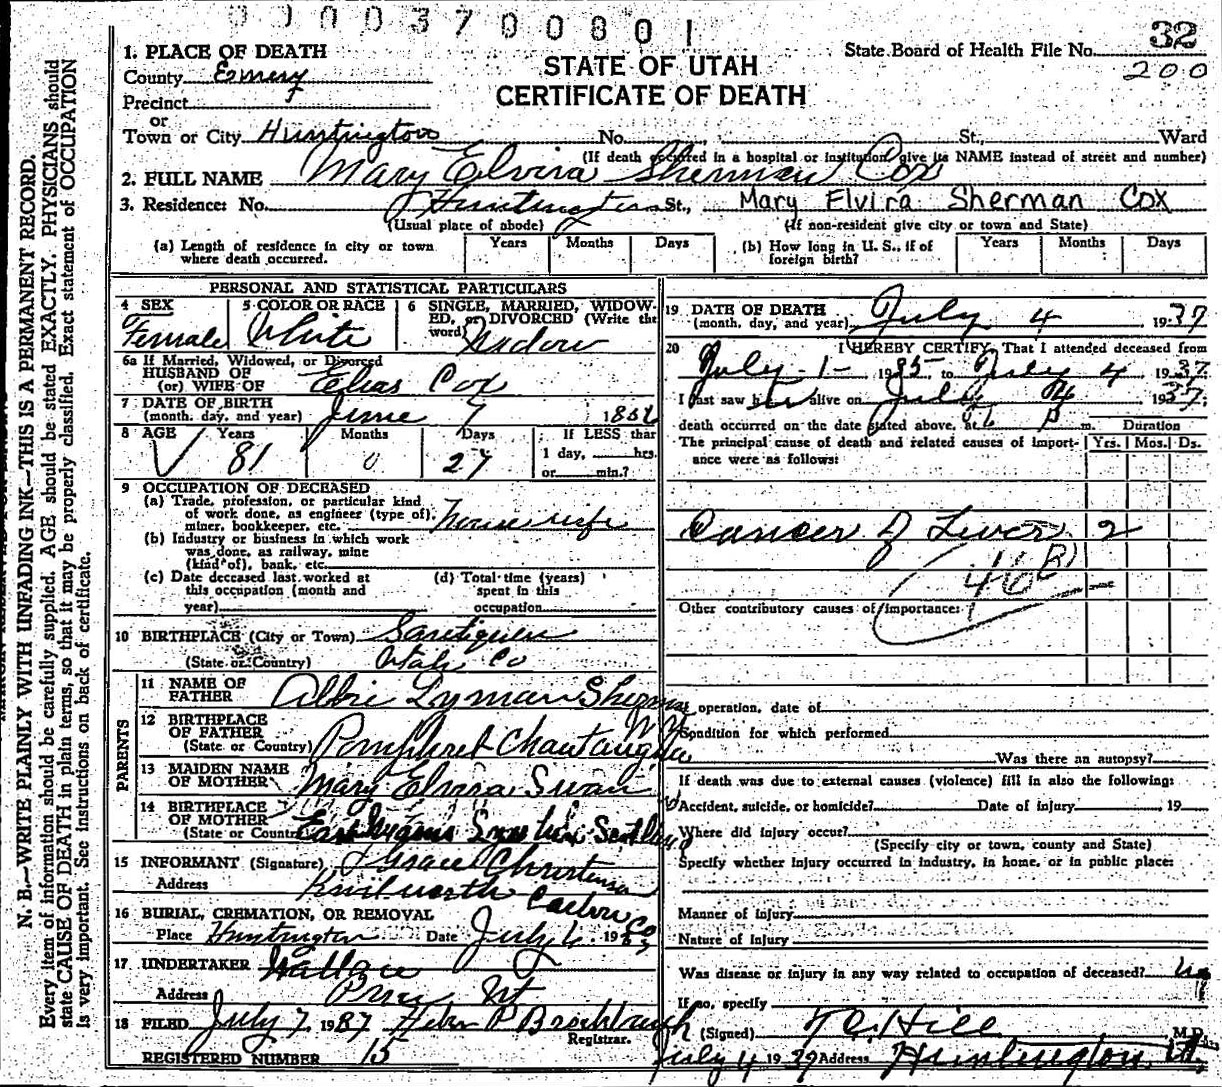 0000370080 1
1. PLACE OF DEATH
County Emery
Precinct
or
Town or City Huntington No. St., Ward
(If death occurred in a hospital or institution, give its NAME instead of street and number)
STATE OF UTAH
CERTIFICATE OF DEATH
State Board of Health File No. 32
200
2. FULL NAME Mary Elvira Sherman Cox
3. Residence: No. Huntington St., Mary Elvira Sherman Cox
(Usual place of abode) (If non-resident give city or town and State)
(a) Length of residence in city or town where death occurred. Years Months Days
(b) How long in U. S., if of foreign birth? Years Months Days
PERSONAL AND STATISTICAL PARTICULARS
4 SEX Female
5 COLOR OR RACE White
6 SINGLE, MARRIED, WIDOWED, or DIVORCED (Write the word) Widow
6a If Married, Widowed, or Divorced
HUSBAND OF
(or) WIFE OF Elias Cox
7 DATE OF BIRTH
(month, day, and year) June 7
8 AGE Years 81 Months 0 Days 27
If LESS than
1 day, hrs.
or min.?
9 OCCUPATION OF DECEASED
(a) Trade, profession, or particular kind
of work done, as engineer (type of),
miner, bookkeeper, etc. House wife
(b) Industry or business in which work
was done, as railway, mine
(kind of), bank, etc.
(c) Date deceased last worked at
this occupation (month and
year)
(d) Total time (years)
spent in this
occupation
10 BIRTHPLACE (City or Town)
(State or Country) Utah Co
PARENTS
11 NAME OF
FATHER Albie Lyman Sherman
12 BIRTHPLACE
OF FATHER
(State or Country) Pomphret Chautauqua N.Y.
13 MAIDEN NAME
OF MOTHER Mary Elvira Swan
14 BIRTHPLACE
OF MOTHER
(State or Country) Scotland
15 INFORMANT (Signature) Grace Christensen
Address Kenilworth Carbon Co
16 BURIAL, CREMATION, OR REMOVAL
Place Huntington Date July 6, 19
17 UNDERTAKER Wallace
Address Price Ut
18 FILED July 7 1937
Registrar.
REGISTERED NUMBER 15
19 DATE OF DEATH
(month, day, and year) July 4 1937
20 I HEREBY CERTIFY, That I attended deceased from
July 1 1935, to July 4, 1937
I last saw her alive on July 4, 1937;
death occurred on the date stated above, at 6 P m. Duration
The principal cause of death and related causes of importance were as follows: Yrs. Mos. Ds.
Cancer of Liver 2
46 B
Other contributory causes of importance:
If operation, date of
Condition for which performed
Was there an autopsy?
If death was due to external causes (violence) fill in also the following:
Accident, suicide, or homicide? Date of injury , 19
Where did injury occur?
(Specify city or town, county and State)
Specify whether injury occurred in industry, in home, or in public place:
Manner of Injury
Nature of Injury
Was disease or injury in any way related to occupation of deceased?
If so, specify
(Signed) T.C. Hill M.D.
July 4 1939 Address Huntington Ut.
N. B.—WRITE PLAINLY WITH UNFADING INK—THIS IS A PERMANENT RECORD.
Every item of information should be carefully supplied. AGE should be stated EXACTLY. PHYSICIANS should
state CAUSE OF DEATH in plain terms, so that it may be properly classified. Exact statement of OCCUPATION
is very important. See instructions on back of certificate.